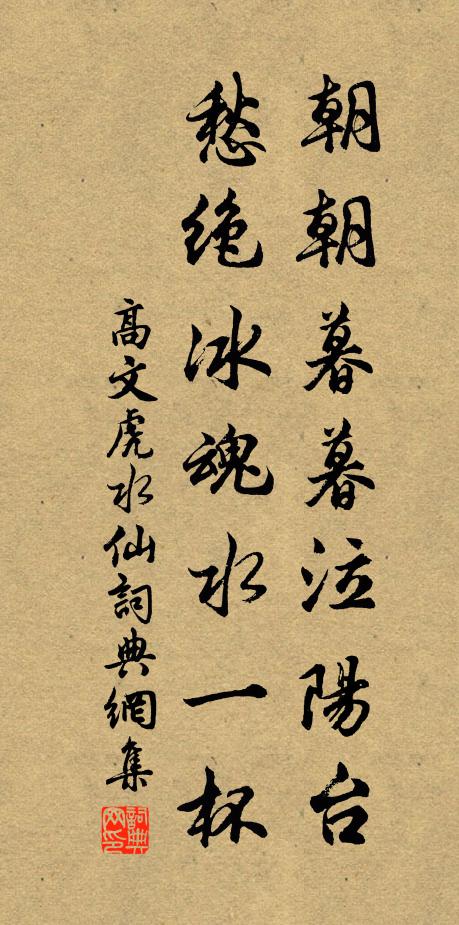 朝朝暮暮泣陽台
愁绝冰魂水一杯
高文虎水仙詞典網集
詞典網印